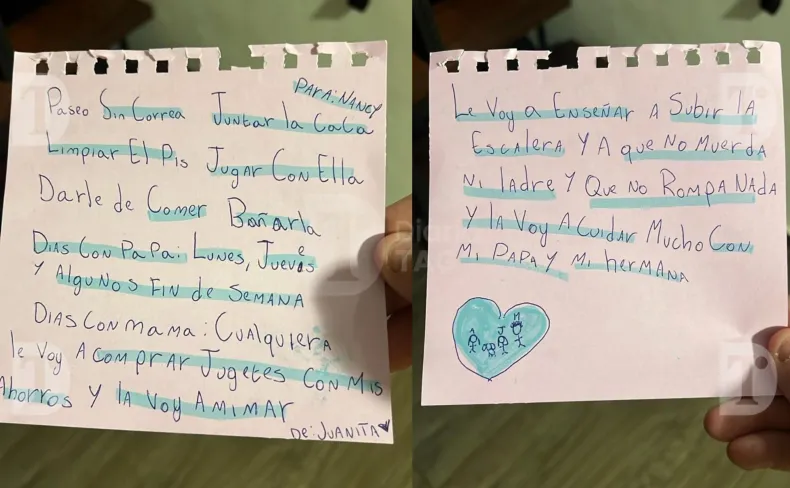 PARA: NANCY
Paseo Sin Correa Juntar la CaCa
Limpiar El Pis Jugar Con Ella
Darle de Comer Bañarla
Dias Con PaPa: Lunes, Jueves
Y Algunos Fin de Semana
Dias Con mama: Cualquiera
le Voy A comprar Jugetes Con Mis
Ahorros Y la Voy A Mimar
De: Juanita
Le Voy a Enseñar A Subir la
Escalera Y A que No Muerda
Ni ladre Y Que No Rompa Nada
Y la Voy A Cuidar Mucho Con
Mi Papa Y Mi hermana